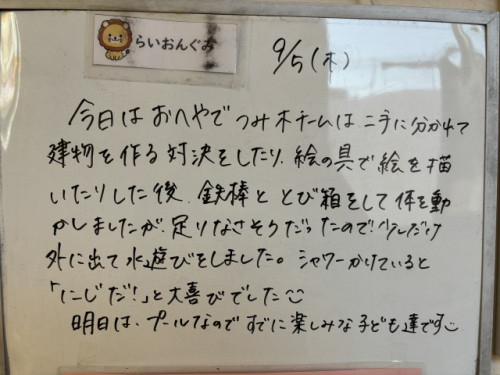 らいおんぐみ
9/5(木)
今日はおへやでつみ木チームは二手に分かれて
建物を作る対決をしたり、絵の具で絵を描
いたりした後、鉄棒ととび箱をして体を動
かしましたが、足りなさそうだったので!少しだけ
外に出て水遊びをしました。シャワーかけていると
「にじだ!」と大喜びでした☺
明日は、プールなのですでに楽しみな子ども達です☺